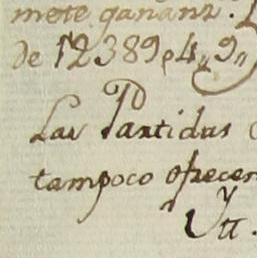 mete gananz.
de 12389 p 4,, 9,,
Las Partidas
tampoco ofrecen
Ytt.